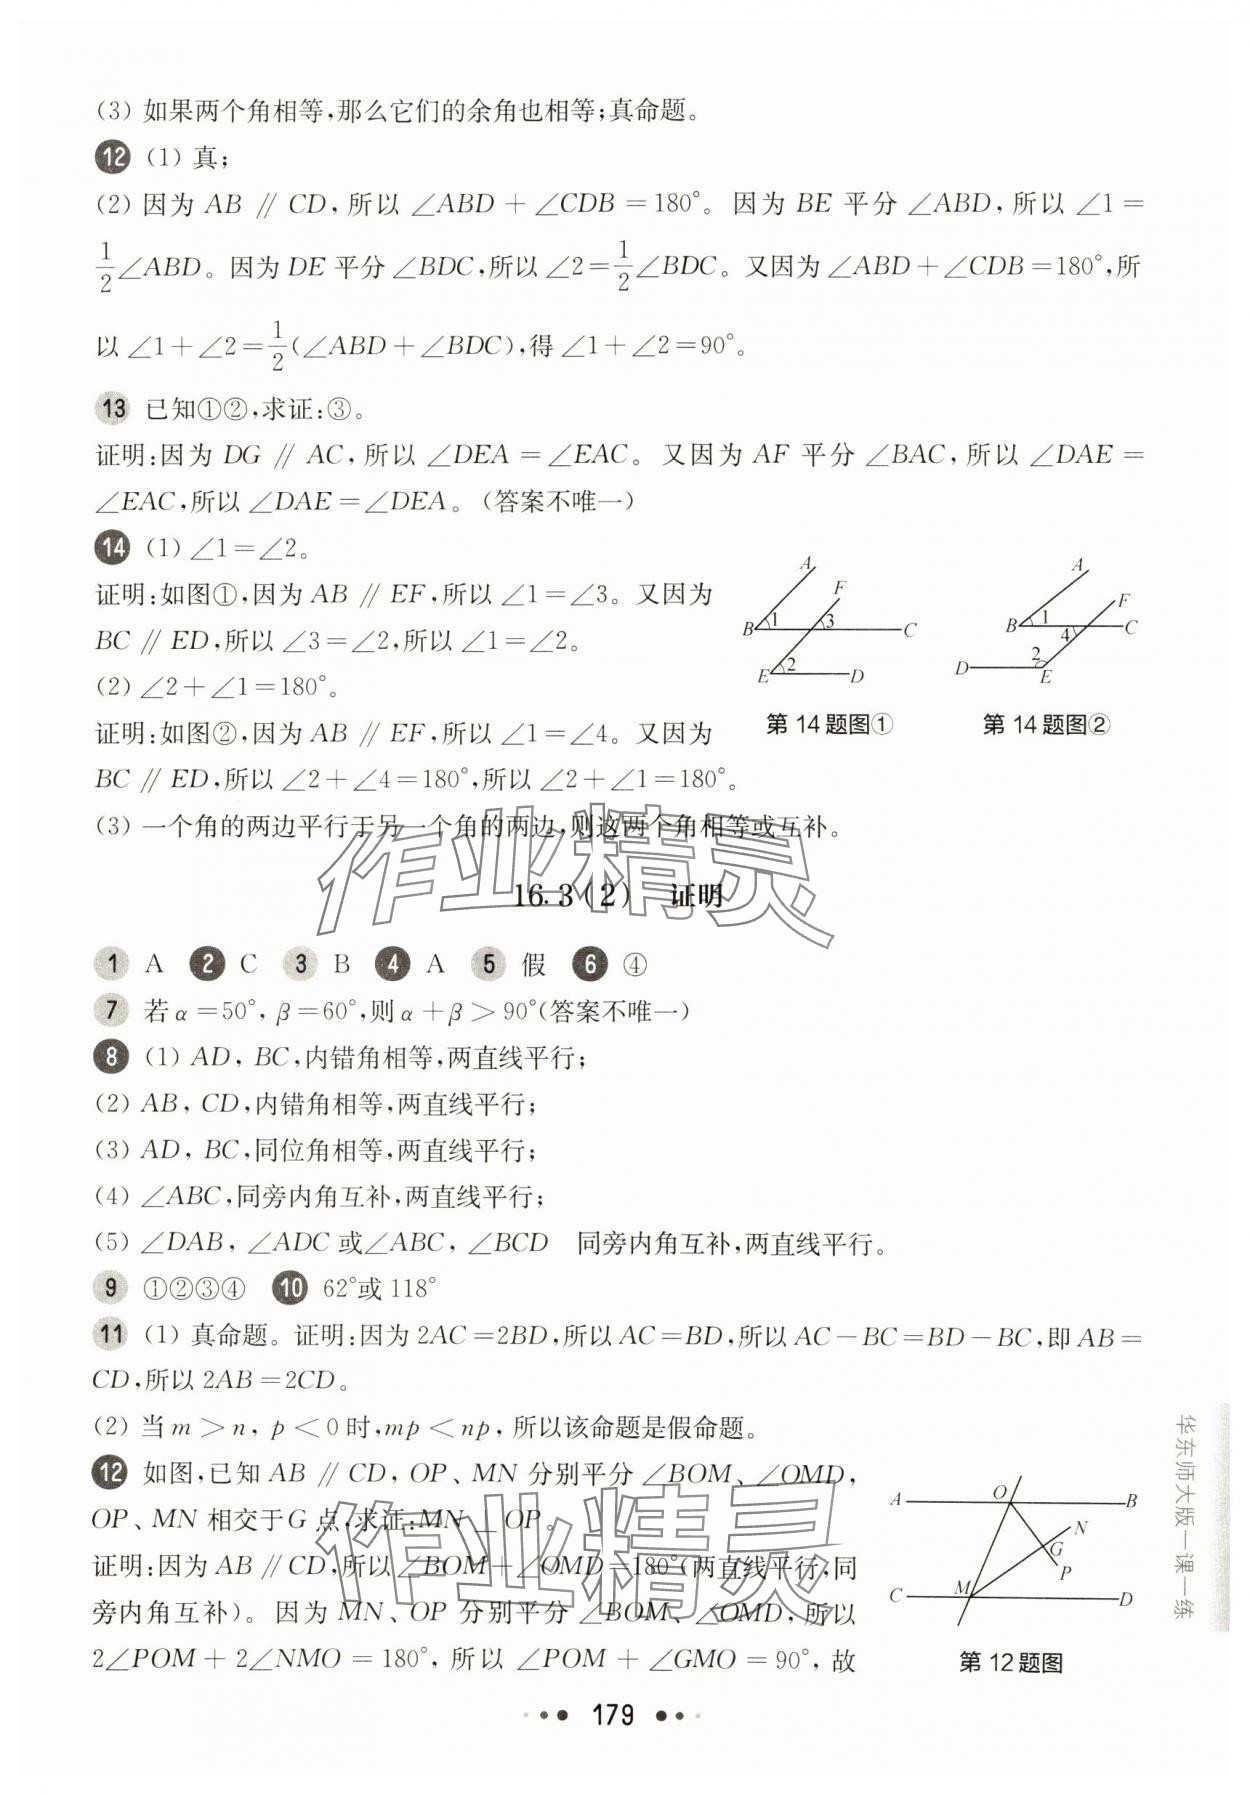 (3) 如果两个角相等,那么它们的余角也相等;真命题。
12 (1) 真;
(2) 因为 AB ∥ CD,所以 ∠ABD + ∠CDB = 180°。因为 BE 平分 ∠ABD,所以 ∠1 =
1/2∠ABD。因为 DE 平分∠BDC,所以∠2=1/2∠BDC。又因为∠ABD+∠CDB=180°,所
以∠1+∠2=1/2(∠ABD+∠BDC),得∠1+∠2=90°。
13 已知①②,求证:③。
证明:因为 DG ∥ AC,所以 ∠DEA = ∠EAC。又因为 AF 平分 ∠BAC,所以 ∠DAE =
∠EAC,所以∠DAE=∠DEA。(答案不唯一)
14 (1) ∠1=∠2。
证明:如图①,因为 AB ∥ EF,所以∠1=∠3。又因为
BC ∥ ED,所以∠3=∠2,所以∠1=∠2。
(2) ∠2+∠1=180°。
证明:如图②,因为 AB ∥ EF,所以∠1=∠4。又因为
BC ∥ ED,所以∠2+∠4=180°,所以∠2+∠1=180°。
A F B 1 3 C E 2 D
第 14 题图①
A F B 1 4 C D 2 E
第 14 题图②
(3) 一个角的两边平行于另一个角的两边,则这两个角相等或互补。
作业精灵
16.3(2) 证明
1 A 2 C 3 B 4 A 5 假 6 ④
7 若α=50°, β=60°,则α+β>90°(答案不唯一)
8 (1) AD, BC,内错角相等,两直线平行;
(2) AB, CD,内错角相等,两直线平行;
(3) AD, BC,同位角相等,两直线平行;
(4) ∠ABC,同旁内角互补,两直线平行;
(5) ∠DAB, ∠ADC 或∠ABC, ∠BCD 同旁内角互补,两直线平行。
9 ①②③④ 10 62°或 118°
11 (1) 真命题。证明:因为 2AC=2BD,所以 AC=BD,所以 AC-BC=BD-BC,即 AB=
CD,所以 2AB=2CD。
(2) 当 m>n, p<0 时,mp<np, 所以该命题是假命题。
12 如图,已知 AB ∥ CD, OP、MN 分别平分 ∠BOM、∠OMD,
OP、MN 相交于 G 点,求证:MN⊥OP。
证明:因为 AB ∥ CD,所以∠BOM+∠OMD=180°(两直线平行,同
旁内角互补)。因为 MN、OP 分别平分 ∠BOM、∠OMD,所以
2∠POM + 2∠NMO = 180°, 所以 ∠POM + ∠GMO = 90°, 故
作业精灵
A O B N G P C M D
第 12 题图
华东师大版一课一练
179